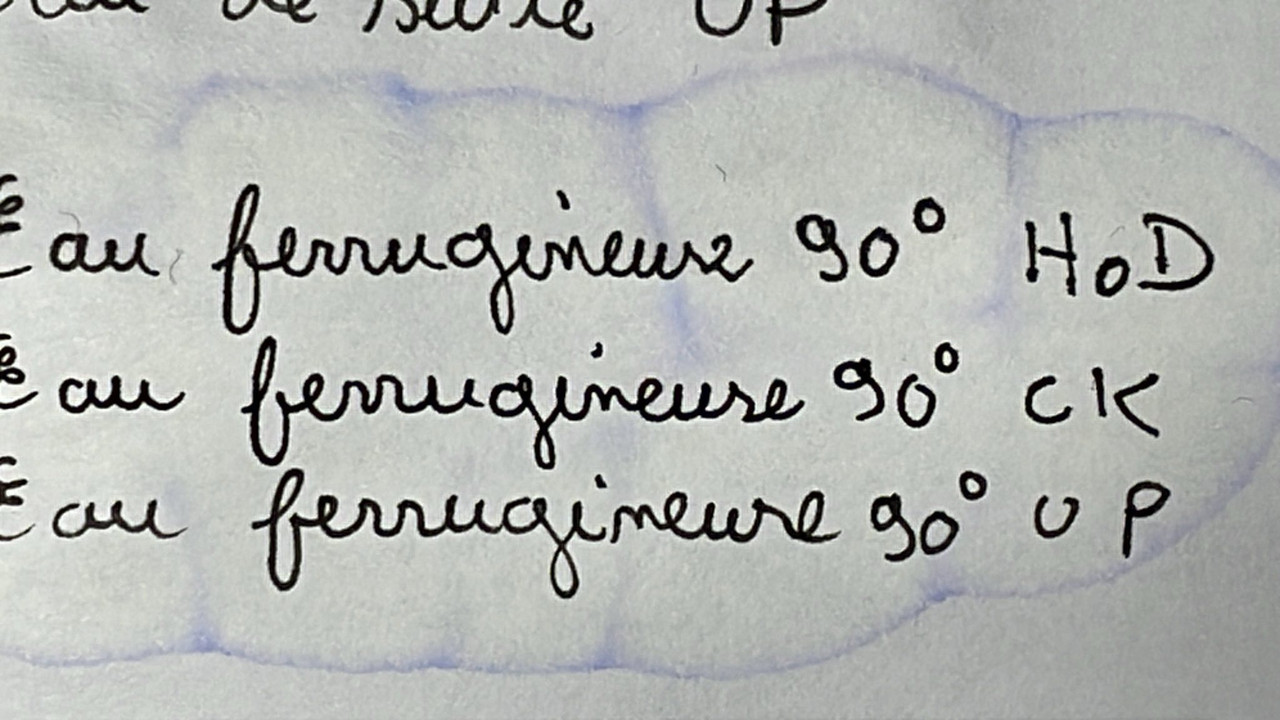 de UP
Eau ferrugineuse 90° HoD
Eau ferrugineuse 90° CK
Eau ferrugineuse 90° UP